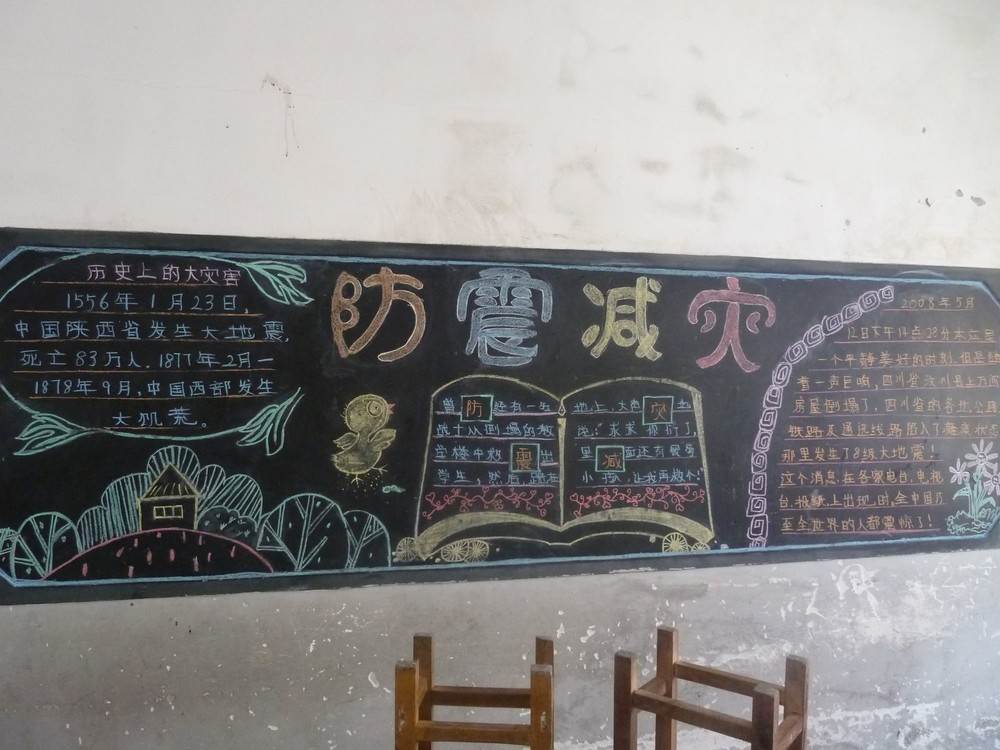 历史上的大灾害
1556年1月23日,
中国陕西省发生大地震,
死亡83万人.1877年2月一
1878年9月,中国西部发生
大饥荒。
防震减灾
曾防经有一名
战士从倒塌的教
学楼中救震出
学生,然后跪在
地上,大声灾地
说:求求你们了,
里减面还有
小孩,让我再救个!
2008年5月
12日下午14点28分本应是
一个平静美好的时刻,但是
着一声巨响,四川省汶川县上万
房屋倒塌了.四川省的各地公路
铁路及通迅线路陷入了
那里发生了8级大地震!
这个消息,在各家电台,电视
台报纸上出现.时,全中国乃
至全世界的人都震惊了!